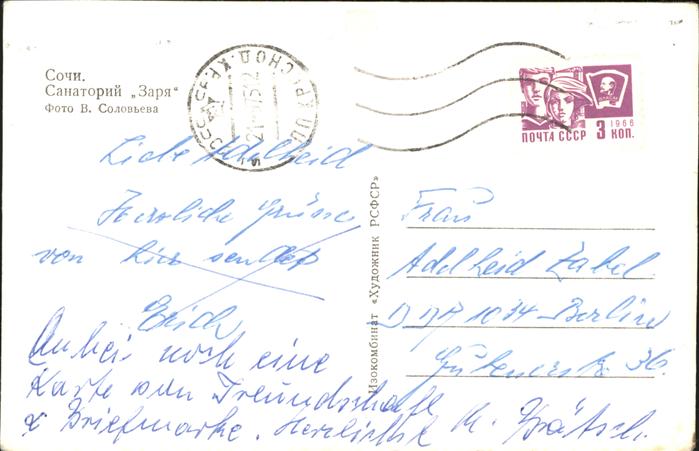 Сочи.
Санаторий „Заря“
Фото В. Соловьева
ПОЧТА СССР 3 КОП.
1966
Изокомбинат «Художник РСФСР»
Liebe Adelheid
Herzliche Grüsse
von hier sendet
Erich
Anbei noch eine
Karte von Freundschaft
& Briefmarke. Herzlichst
Frau
Adelheid Zabel
DDR 1034 - Berlin
Gubenerstr. 36.